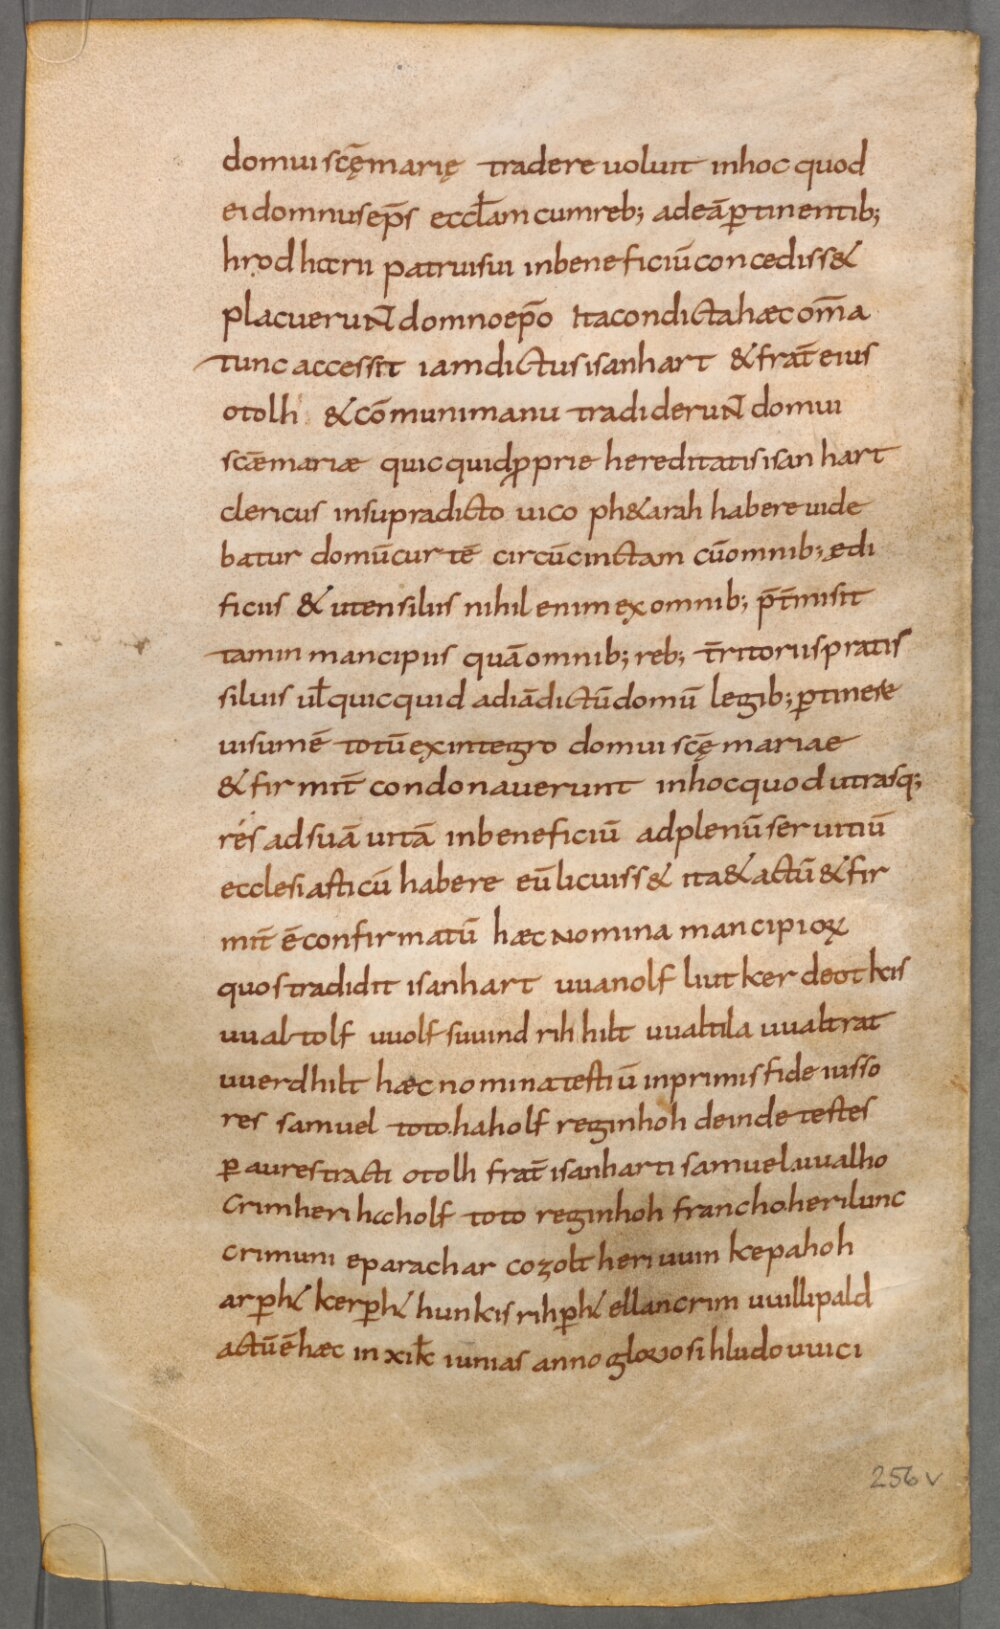 domui scę̄ marię tradere uoluit inhoc quod
ei domnus ep̄s eccl̄am cumreb; ad eā ꝑtinentib;
hrodharii patrui sui inbeneficiū concediss&
placuerunt domno ep̄o Ita condicta hæc om̄a
tunc accessit iamdictus isanhart & frat̄ eius
otolh & cōmuni manu tradiderunt domui
scǣ mariæ quicquid ꝓprie hereditatis isanhart
clericus insupradicto uico ph&arah habere uide
batur domū curtē circūcinctam cū omnib; ędi
ficiis & utensiliis nihil enim ex omnib; p̄t̄misit
tam in mancipiis quā omnib; reb; t̄ritoriis pratis
siluis ul̄ quicquid ad iādictū domū legib; ꝑtinere
uisum ē totū ex integro domui scę̄ mariae
& firmit̄ condonauerunt inhoc quod utrasq;
res ad suā uitā inbeneficiū ad plenū seruitiū
ecclesiasticū habere eū licuiss& ita & actū & fir
mit̄ ē confirmatū hæc nomina mancipioꝝ
quos tradidit isanhart uuanolf liutker deotkis
uualtolf uuolfsuuind rihhilt uualtila uualtrat
uuerdhilt hæc nomina testiū inprimis fideiusso
res samuel toto. haholf reginhoh deinde testes
ꝑ aures tracti otolh frat̄ isanharti samuel. uualho
crimheri hacholf toto reginhoh francho. herilunc
crimuni eparachar cozolt heriuuin kepahoh
arꝑht kerꝑht hunkis rihꝑht ellancrim uuillipald
actū ē hæc in xi kł iunias anno gloriosi hludouuici
256v